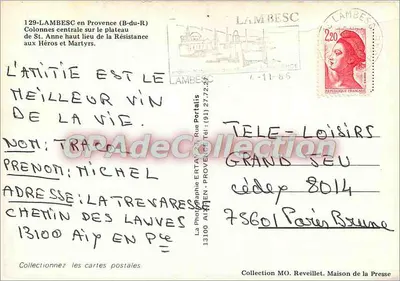 129-LAMBESC en Provence (B-du-R)
Colonnes centrale sur le plateau
de St. Anne haut lieu de la Résistance
aux Héros et Martyrs.
L'AMITIE EST LE
MEILLEUR VIN
DE LA VIE.
NOM: TRACOL
PRENOM: MICHEL
ADRESSE: LA TREVARESSE
CHEMIN DES LAUVES
13100 Aix EN Pce
Collectionnez les cartes postales
La Photographie ERTA
Rue Portalis
13100 AIX-EN-PROVENCE
LAMBESC
LAMBESC
-11-86
LAMBESC
2,20
TELE-LOISIRS
GRAND JEU
cédex 8014
75601 Paris Brune
Collection MO. Reveillet. Maison de la Presse
CPAdeCollection